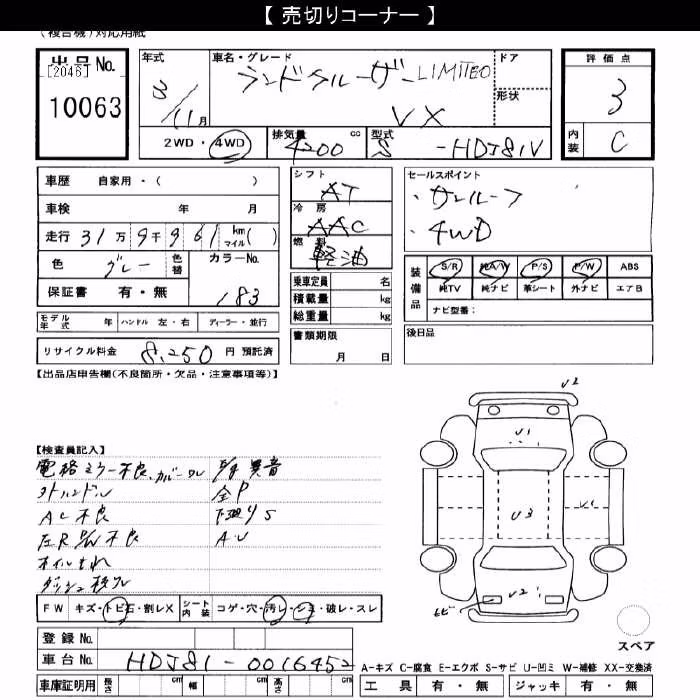 【 売切りコーナー 】
(複合機)対応用紙
出品No. [2046] 10063
年式 3/11月
車名・グレード ランドクルーザー LIMITED VX
ドア
形状
評価点 3
内装 C
2WD・4WD
排気量 4200 cc
型式 S -HDJ81V
車歴 自家用・( )
車検 年 月
走行 31万9千961 km マイル( )
色 グレー 色替
カラーNo. 183
保証書 有・無
シフト AT
冷房 AAC
燃料 軽油
乗車定員 名
積載量 kg
総重量 kg
セールスポイント
・サンルーフ
・4WD
装備品 S/R 純A/W P/S P/W ABS
純TV 純ナビ 革シート 外ナビ エアB
ナビ型番:
モデル年式 年 ハンドル 左・右 ディーラー・並行
書類期限 月 日
後日品
リサイクル料金 8,250 円 預託済
【出品店申告欄(不良箇所・欠品・注意事項等)】
【検査員記入】
電格ミラー不良、カバーワレ
異音
外ハンドル
全P
AC不良
下廻りS
左R 不良
A.U
オイルもれ
ダッシュ
U2
U1
U3
U1
U2
トビ
FW キズ・トビ石・割レX シート内装 コゲ・穴・汚レ・シミ・破レ・スレ
スペア
登録No.
車台No. HDJ81-0016452
A-キズ C-腐食 E-エクボ S-サビ U-凹ミ W-補修 XX-交換済
車庫証明用 長さ cm 幅 cm 高さ cm
工具 有・無 ジャッキ 有・無